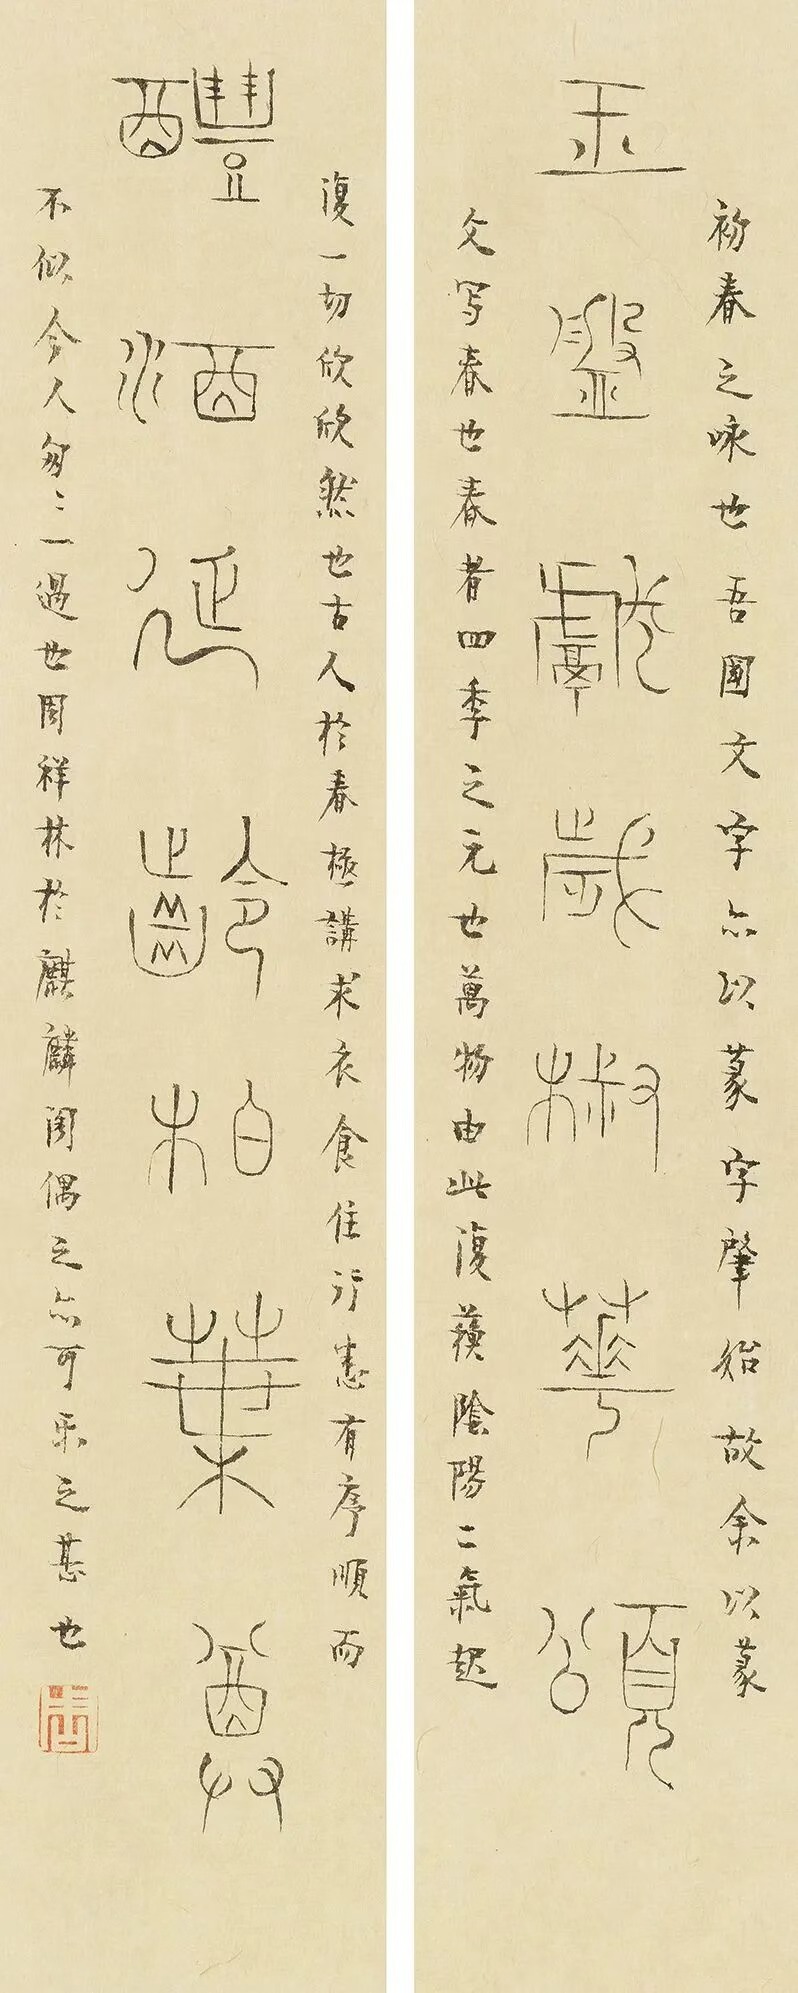 玉盤獻歲椒華頌
醴酒延齡柏葉尊
初春之咏也吾國文字亦以篆字肇始故余以篆
文写春也春者四季之元也萬物由此復蘇陰陽二氣起
復一切欣欣然也古人於春極講求衣食住行悉有序順而
不似今人匆々一過也周祥林於麒麟閣偶之亦可乐之甚也